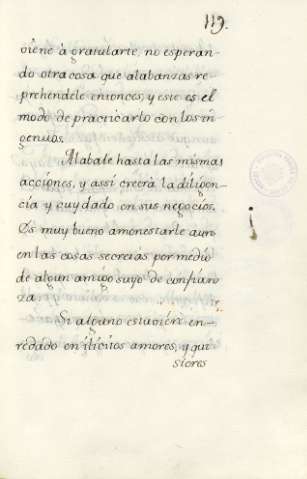 119.
viene à gratularte, no esperan-
do otra cosa que alabanzas re-
prehendele entonces, y este es el
modo de practicarlo con los in-
genuos.
Alabale hasta las mismas
acciones, y assi creerà la diligen-
cia, y cuydado en sus negocios.
Es muy bueno amonestarle aun
en las cosas secretas por medio
de algun amigo suyo de confian-
za.
Si alguno estuviere en-
redado en ilicitos amores, y qui
sieres